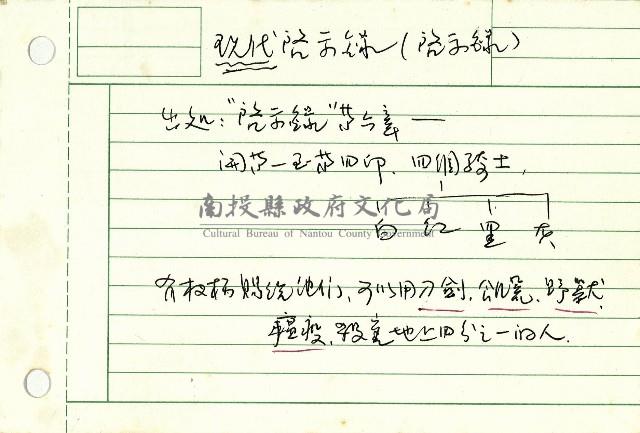 現代启示錄(启示錄)
出处:"启示錄"第六章—
開第一至第四印、四個騎士,
南投縣政府文化局
Cultural Bureau of Nantou County Government
白 红 黑 灰
有权柄賜给他们、可以用刀劍、飢荒、野獸、
瘟疫、殺害地上四分之一的人.